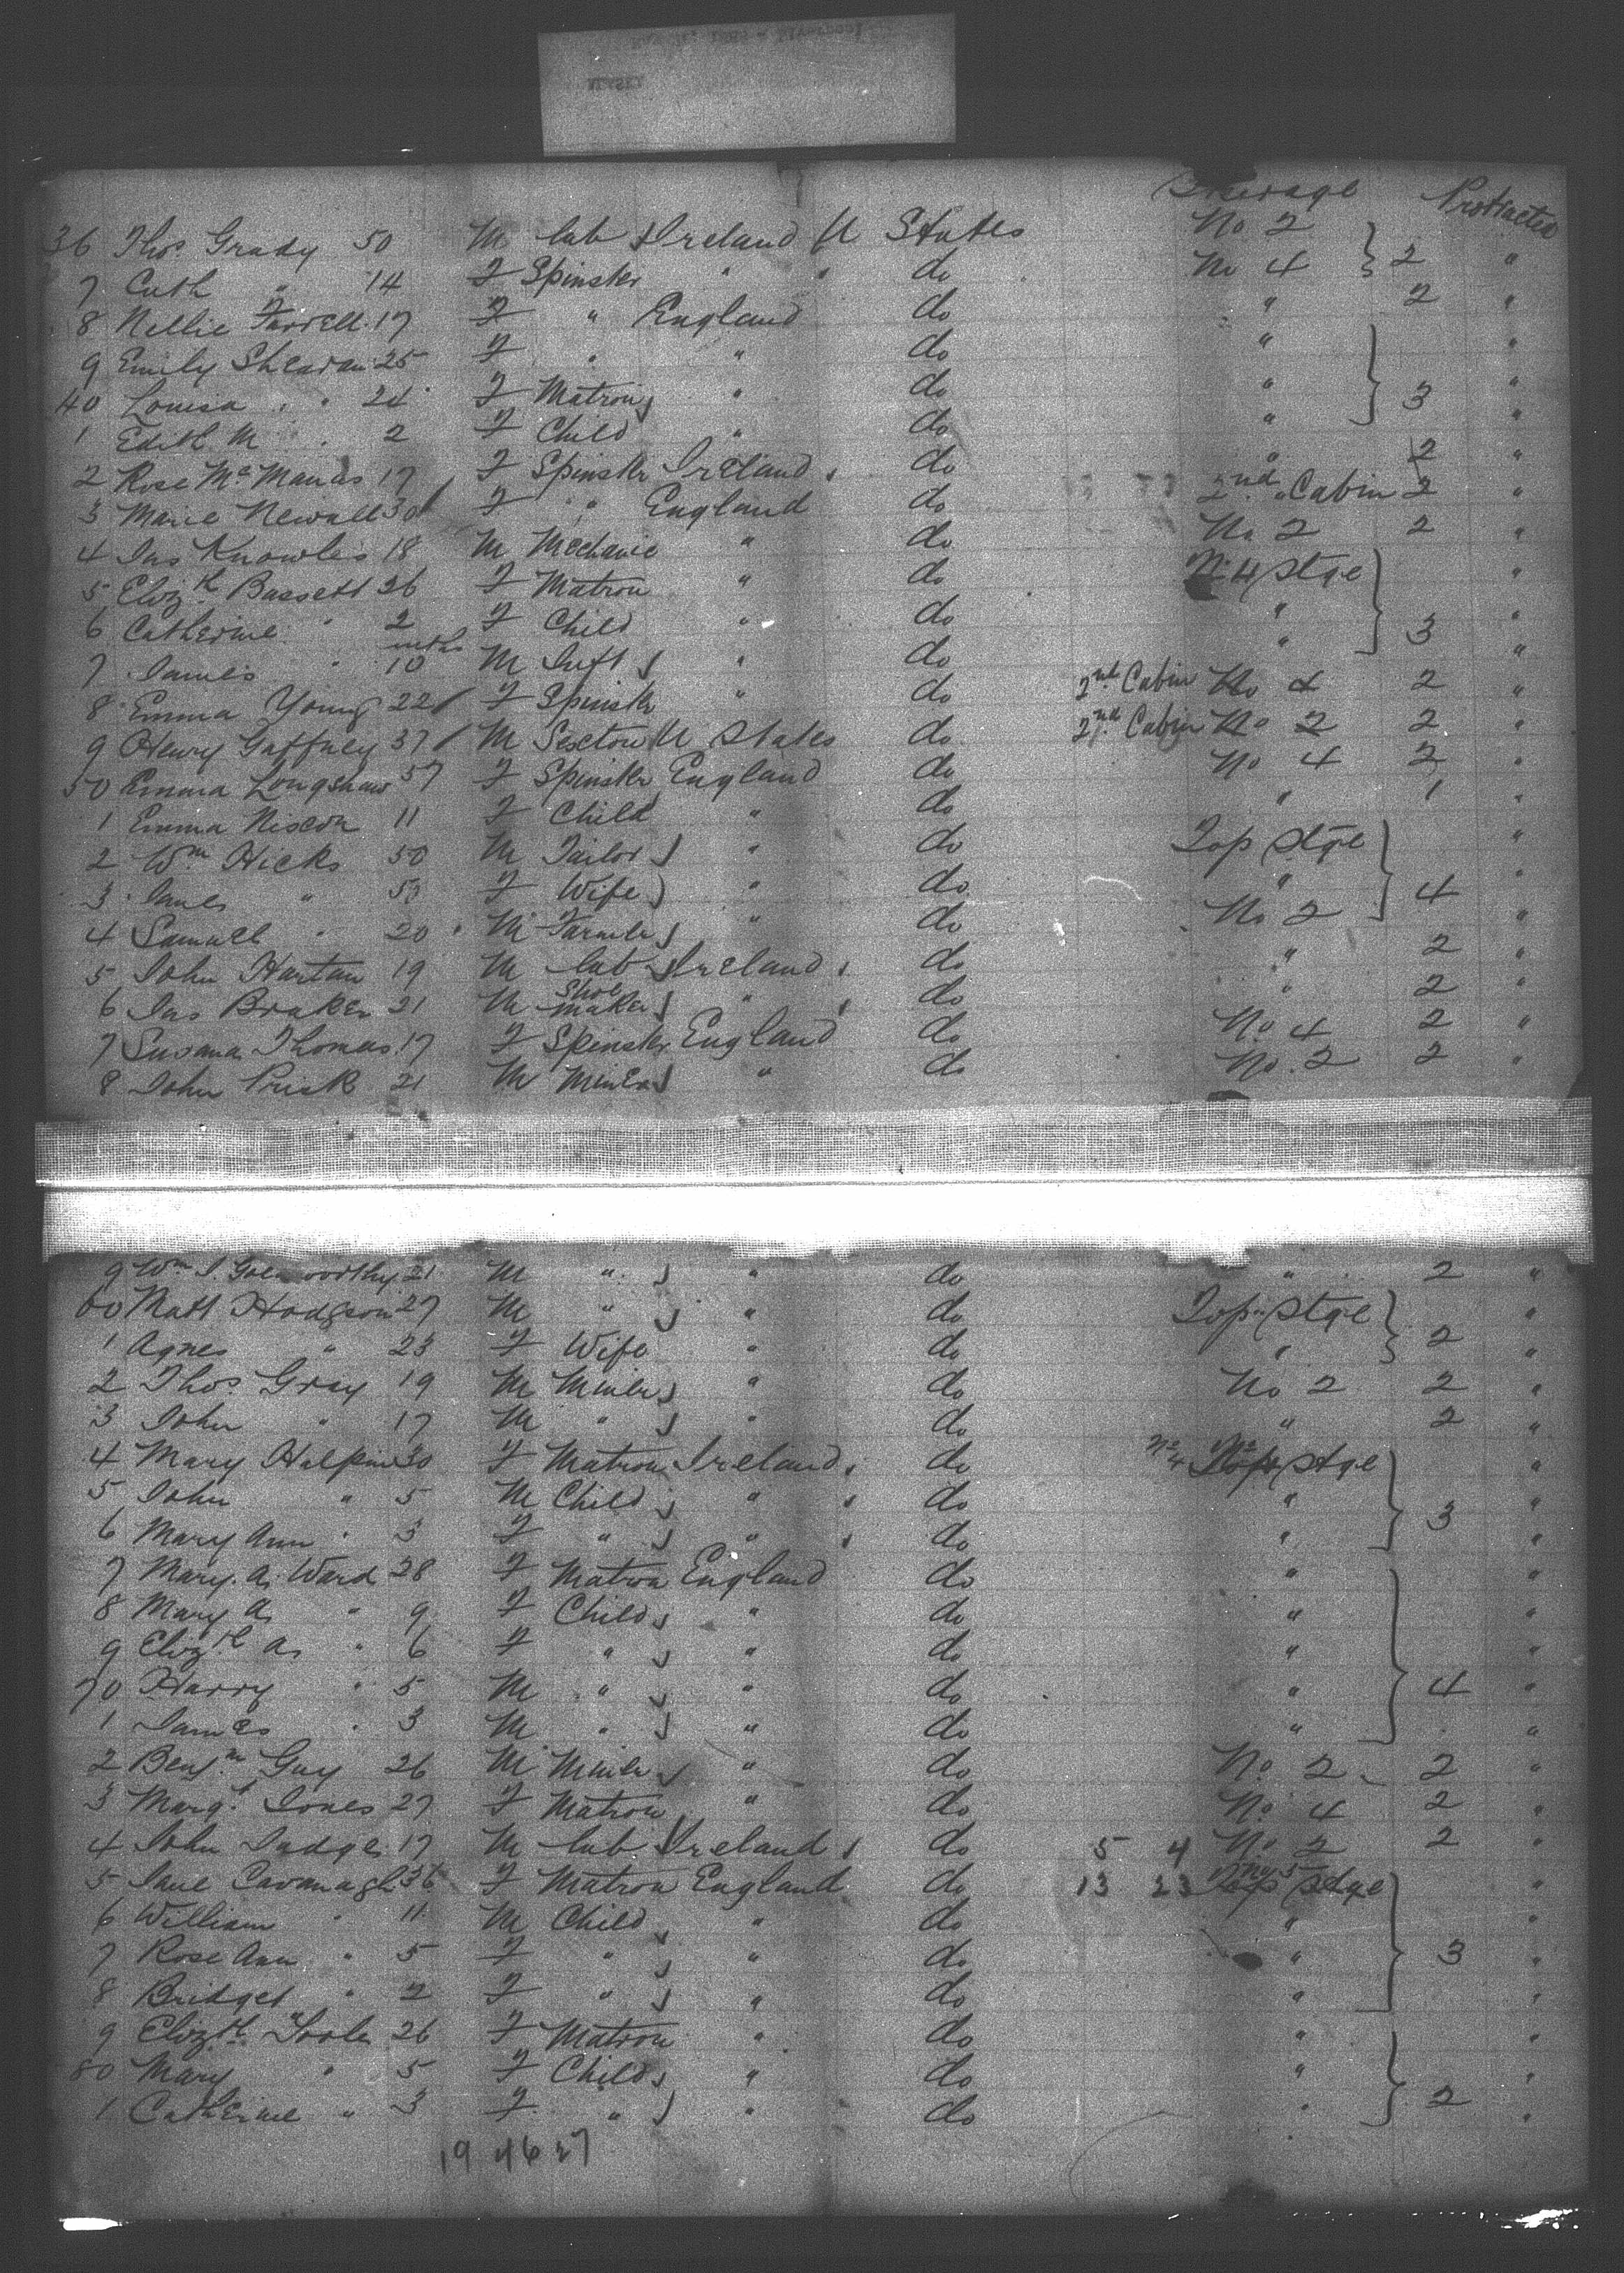 Steerage Protracted
36 Thos. Grady 50 M Lab Ireland U States No 2
7 Cath " 14 F Spinster " " do No 4 } 2 "
8 Nellie Farrell 17 F " England do " 2 "
9 Emily Shearan 25 F " " do " "
40 Louisa " " 24 F Matron " do " 3 "
1 Edith M " 2 F Child " do " "
2 Rose McManus 17 F Spinster Ireland do " 2 "
3 Marie Newall 30 F " England do 2nd Cabin 2 "
4 Jas Knowles 18 M Mechanic " do No 2 2 "
5 Elizth Bassett 26 F Matron " do No 4 Stge "
6 Catherine " 2 F Child " do " 3 "
7 James " 10 mths M Inft " do " "
8 Emma Young 22 F Spinster " do 2nd Cabin No 4 2 "
9 Henry Gaffney 37 M Sexton U States do 2nd Cabin No 2 2 "
50 Emma Longshaw 57 F Spinster England do No 4 2 "
1 Emma 11 F Child " do " 1 "
2 Wm Hicks 50 M Tailor " do Top Stge "
3 " 50 F Wife " do " 4 "
4 Samuel " 20 M Farmer " do No 2 "
5 John Hartan 19 M Lab Ireland do " 2 "
6 Jas Braken 21 M Shoemaker " do " 2 "
7 Susana Thomas 17 F Spinster England do No 4 2 "
8 John Prisk 21 M Miner " do No. 2 2 "
9 Wm J. 21 M " " do " 2 "
60 Matt Hodgson 27 M " " do Top Stge "
1 Agnes " 23 F Wife " do " 2 "
2 Thos. Gray 19 M Miner " do No 2 2 "
3 John " 17 M " " do " 2 "
4 Mary Halpin 30 F Matron Ireland do No 4 Stge "
5 John " 5 M Child " do " 3 "
6 Mary Ann " 3 F " " do " "
7 Mary A. Ward 28 F Matron England do " "
8 Mary A " 9 F Child " do " "
9 Elizth A " 6 F " " do " "
70 Harry " 5 M " " do " 4 "
1 James " 3 M " " do " "
2 Benjm Guy 26 M Miner " do No. 2 2 "
3 Margt Jones 27 F Matron " do No 4 2 "
4 John Judge 17 M Lab Ireland do 5 4 No 2 2 "
5 Jane Cavanagh 36 F Matron England do 13 23 No 5 Stge "
6 William " 11 M Child " do " "
7 Rose Ann " 5 F " " do " 3 "
8 Bridget " 2 F " " do " "
9 Elizth Toole 26 F Matron " do " "
80 Mary " 5 F Child " do " "
1 Catherine " 3 F " " do " 2 "
19 46 27